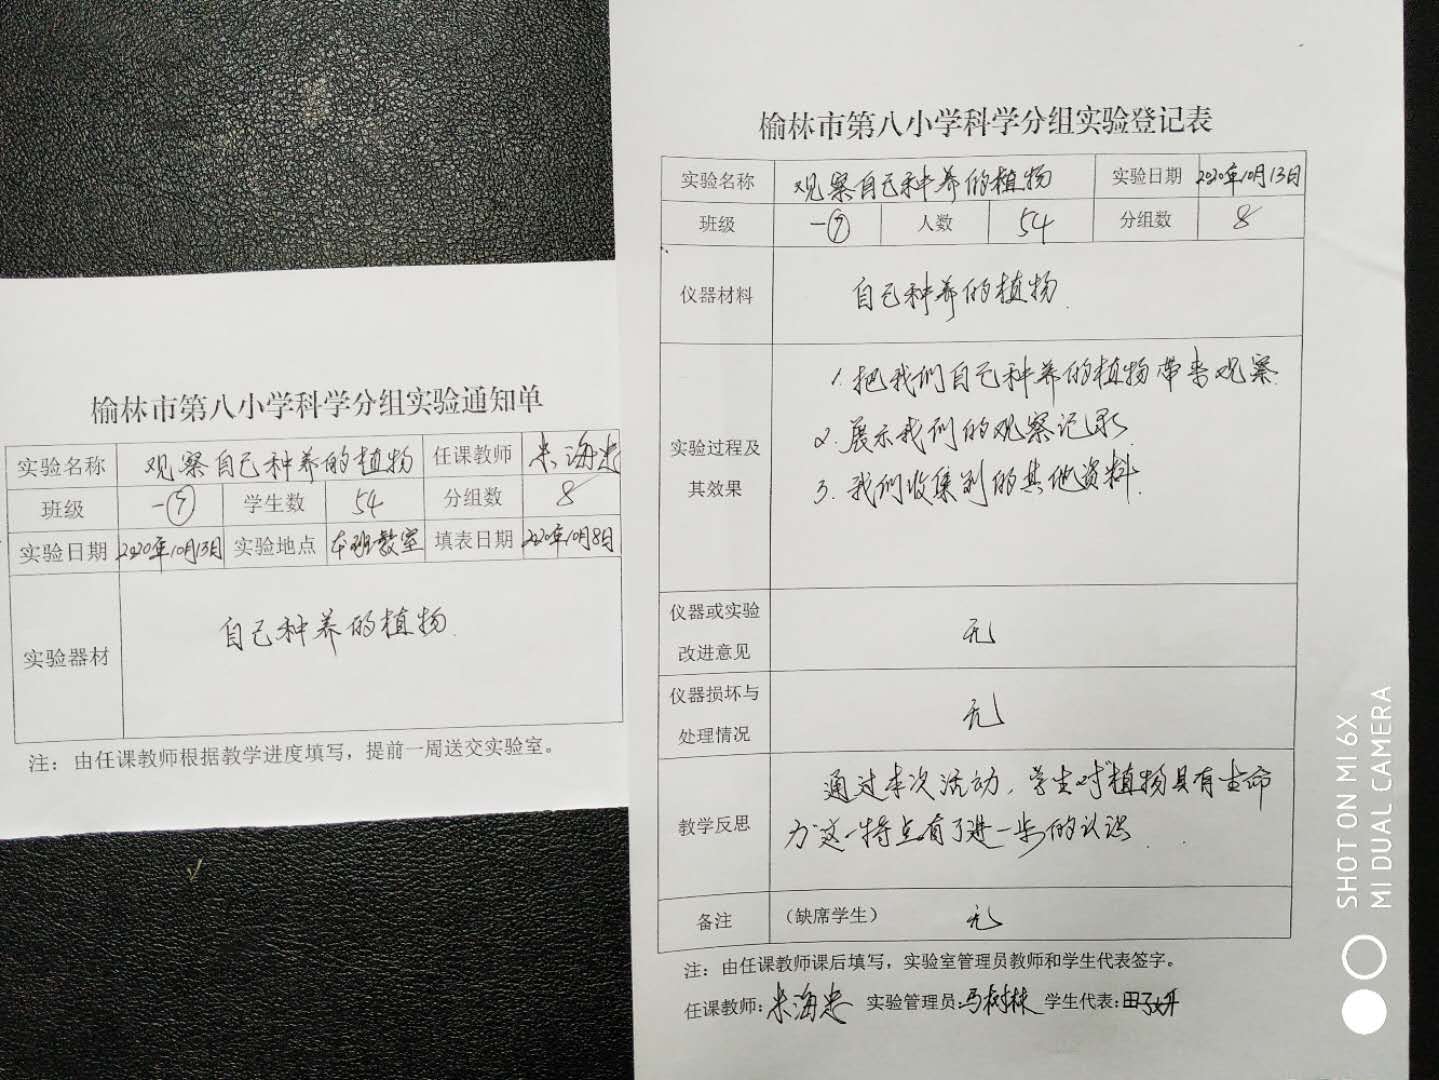 榆林市第八小学科学分组实验通知单
实验名称 观察自己种养的植物 任课教师 朱海忠
班级 一⑦ 学生数 54 分组数 8
实验日期 2020年10月13日 实验地点 本班教室 填表日期 2020年10月8日
实验器材 自己种养的植物
注：由任课教师根据教学进度填写，提前一周送交实验室。
榆林市第八小学科学分组实验登记表
实验名称 观察自己种养的植物 实验日期 2020年10月13日
班级 一⑦ 人数 54 分组数 8
仪器材料 自己种养的植物.
1.把我们自己种养的植物带来观察.
2.展示我们的观察记录.
实验过程及
其效果
3.我们收集到的其他资料.
仪器或实验
改进意见
无
仪器损坏与
处理情况
无
教学反思
通过本次活动,学生对"植物具有生命
力"这一特点有了进一步的认识.
备注 （缺席学生） 无
注：由任课教师课后填写，实验室管理员教师和学生代表签字。
任课教师:朱海忠 实验管理员:马树林 学生代表:田子妍
SHOT ON MI 6X
MI DUAL CAMERA